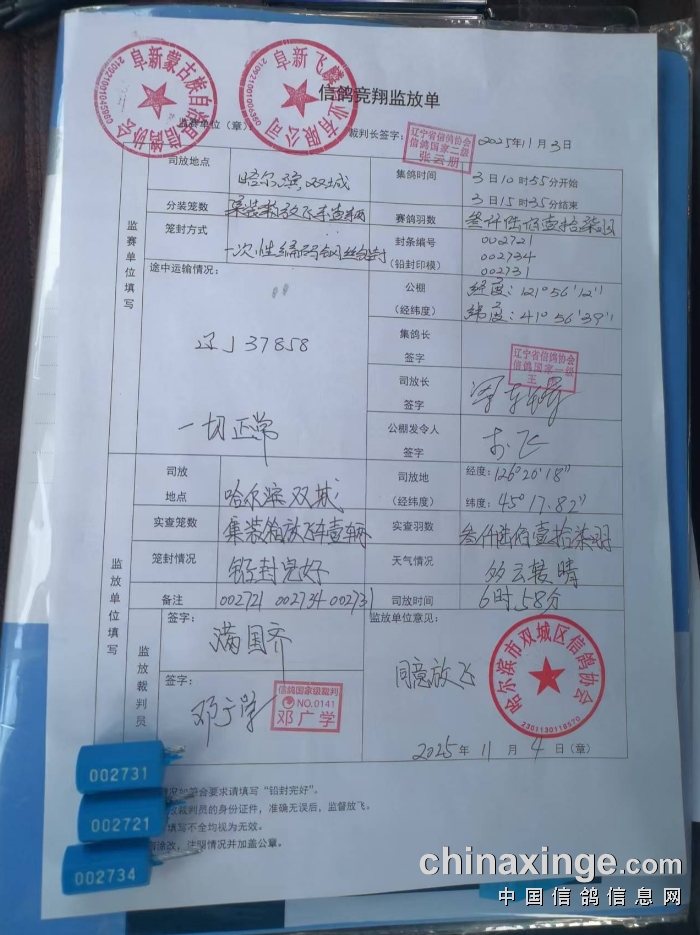 阜新蒙古族自治县信鸽协会
信鸽竞翔监放单
监赛单位（章）
裁判长签字：
辽宁省信鸽协会
信鸽国家二级
张云册
2025年11月3日
监赛单位填写
司放地点
哈尔滨双城
集鸽时间
3日10时55分开始
3日15时35分结束
分装笼数
集装箱放飞车壹辆
赛鸽羽数
叁仟陆佰壹拾柒羽
笼封方式
一次性编码钢丝铅封
封条编号
（铅封印模）
002721
002734
002731
途中运输情况：
辽J37858
一切正常
公棚
（经纬度）
经度：121°56'12"
纬度：41°56'39"
集鸽长
签字
辽宁省信鸽协会
信鸽国家一级
王
司放长
签字
公棚发令人
签字
监放单位填写
司放
地点
哈尔滨双城
司放地
（经纬度）
经度：126°20'18"
纬度：45°17.82"
实查笼数
集装箱放飞车壹辆
实查羽数
叁仟陆佰壹拾柒羽
笼封情况
铅封完好
天气情况
多云转晴
备注
002721 002734 002731
司放时间
6时58分
监放裁判员
签字：
满国齐
签字：
邓广学
信鸽国家级裁判
NO.0141
邓广学
监放单位意见：
同意放飞
哈尔滨市双城区信鸽协会
2301130118570
2025年11月4日（章）
002731
002721
002734
符合要求请填写“铅封完好”。
裁判员的身份证件，准确无误后，监督放飞。
填写不全均视为无效。
涂改，注明情况并加盖公章。
chinaxinge.com
中国信鸽信息网